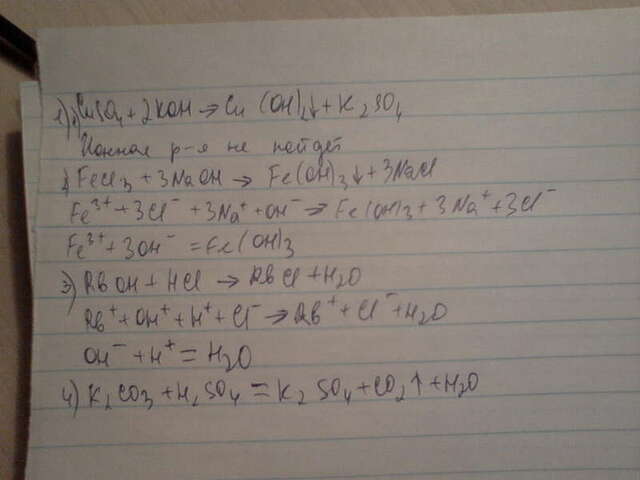 1) 1) CuSO4 + 2KOH → Cu (OH)2↓ + K2SO4
Ионная р-я не пойдет
2) FeCl3 + 3NaOH → Fe(OH)3↓ + 3NaCl
Fe³⁺ + 3Cl⁻ + 3Na⁺ + OH⁻ → Fe(OH)3 + 3Na⁺ + 3Cl⁻
Fe³⁺ + 3OH⁻ = Fe(OH)3
3) RbOH + HCl → RbCl + H2O
Rb⁺ + OH⁺ + H⁺ + Cl⁻ → Rb⁺ + Cl⁻ + H2O
OH⁻ + H⁺ = H2O
4) K2CO3 + H2SO4 = K2SO4 + CO2↑ + H2O